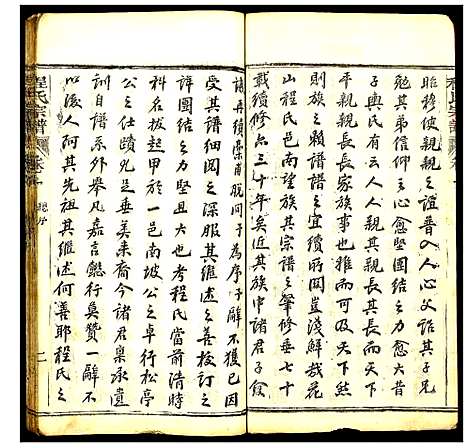 昭穆使親親之誼普入人心父詔其子兄
勉其弟信仰之心愈堅團結之力愈大昔
子輿氏有云人人親其親長其長而天下
平親親長長家族事也雖而可及天下然
則族之繫譜之宜續所關豈淺鮮哉花
山程氏邑南望族其宗譜之肇修垂七十
載續修亦三十年矣近其族中諸君子僉
議再續稾甫脫問予為序予辭不獲已因
受其譜細閱之深服其繼述之善校訂之
詳團結之堅且大也考程氏當前清時
科名拔起甲於一邑南坡公之卓行松亭
公之仕蹟光昆垂美來裔今諸君稟承遺
訓自譜系外舉凡嘉言懿行莫贊一辭不
以後人阿其先祖其繼述何善耶程氏之
程氏宗譜
卷首
序
二